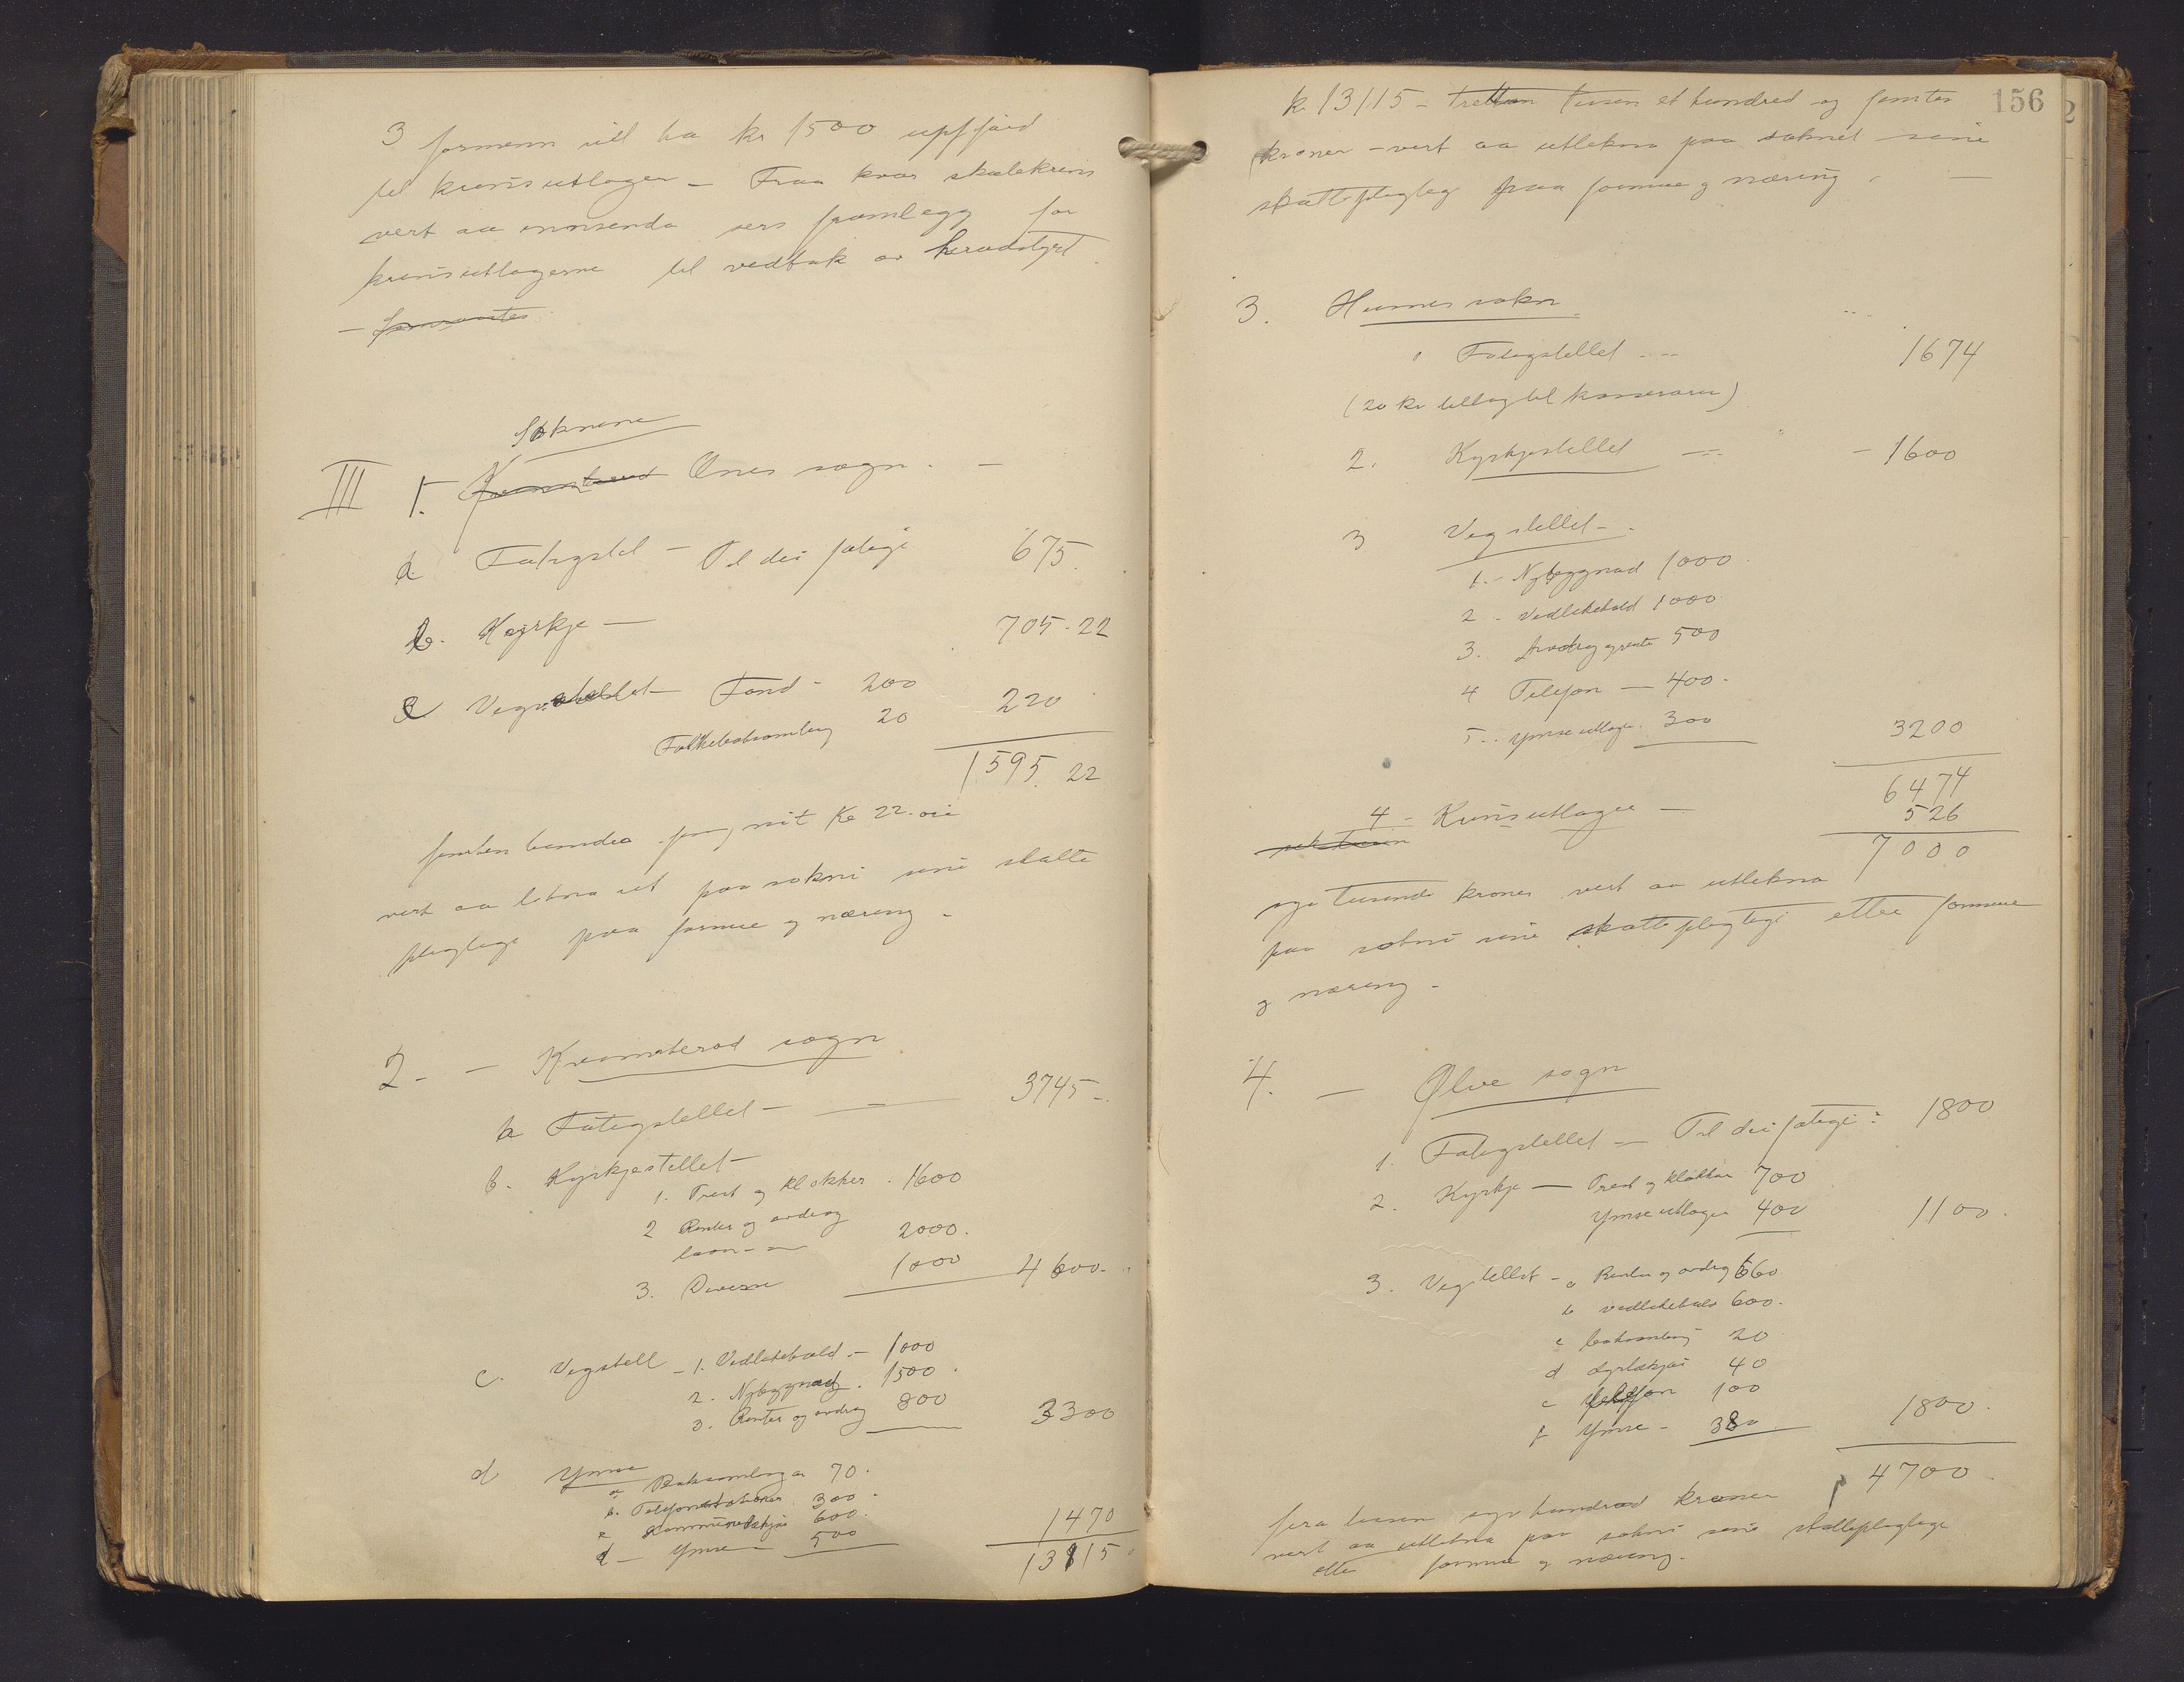 3 formenn vil ha kr 1500 uppførd
til krinsutlogor - Fraa kvar skulekrins
vert aa innsenda sers framlegg for
krinsutlogorne til vedtak av heradstyret.
Soknene
III 1. Ænes sogn. -
a Fatigstel - Til dei fatige 675.
b. Kyrkje - 705.22
c Vegstellet Fond - 200
Folkeboksamling 20 220
1595.22
femten hundra kr 22 øre
vert aa likna ut paa sokni sine skatte
plagtige paa formue og næring.
2 - - Kvamsherad sogn
a Fatigstellet - - 3745 -
b. Kyrkjestellet -
1. Prest og klokker. 1600
2 Renter og avdrag
laan - 2000.
3. Diverse 1000 4600.
c. Vegstell - 1. Vedlikehald. - 1000
2. Nybyggnad. 1500.
3. Renter og avdrag 800 3300
d Ymse
a Boksamlingar 70.
b. Telefonstationer 300.
c 600.
d - Ymse - 500 1470
13115
156
kr 13115 - tretten tusen et hundred og femten
kroner - vert aa utlikna paa soknet sine
skatteplagtige paa formue og næring. -
3. Husnes sokn.
1 Fatigstellet - - 1674
(20 kr tillag til kasseraren)
2. Kyrkjestellet - - 1600
3 Vegstellet -
1. - Nybyggnad 1000
2 - Vedlikehald 1000
3. Avdrag og rente 500
4 Telefon - 400 -
5 - Ymse utlogor 300 3200
6474
4 - Krinsutlogor - 526
7000
syv tusende kroner vert aa utlikna
paa sokni sine skatteplagtige etter formue
og næring -
4. - Ølve sogn
1. Fatigstellet - Til dei fatige: 1800
2. Kyrkje - Prest og klokkar 700
Ymse utlogor 400 1100.
3. Vegstellet - a Renter og avdrag 660
b vedlikehald 600.
c boksamling 20
d dyrlækjar 40
e telefon 100
f Ymse - 380 1800.
4700
fira tusen syv hundrad kroner
vert aa utlikna paa sokni sine skatteplagtige
etter formue og næring.